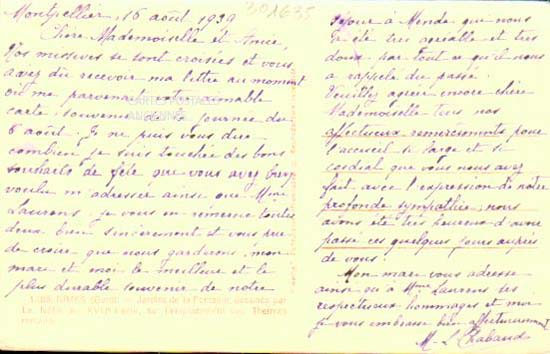 Montpellier, 15 août 1939
301635
Chère Mademoiselle et Amie,
Nos missives se sont croisées et vous
avez dû recevoir ma lettre au moment
où me parvenait votre aimable
carte souvenir de la journée du
6 août. Je ne puis vous dire
combien je suis touchée des bons
souhaits de fête que vous avez bien
voulu m'adresser ainsi que Mme
Laurens, je vous en remercie toutes
deux bien sincèrement et vous prie
de croire que nous garderons, mon
mari et moi le meilleur et le
plus durable souvenir de notre
NIMES (Gard) — Jardins de la Fontaine dessinés par
séjour à Mende que nous
a été très agréable et très
doux par tout ce qu'il nous
a rappelé du passé.
Veuillez agréer encore chère
Mademoiselle tous nos
affectueux remerciements pour
l'accueil si large et si
cordial que vous nous avez
fait avec l'expression de notre
profonde sympathie, nous
avons été très heureux d'avoir
passé ces quelques jours auprès
de vous.
Mon mari vous adresse
ainsi qu'à Mme Laurens ses
respectueux hommages et moi
je vous embrasse bien affectueusement
M. L. Chabaud